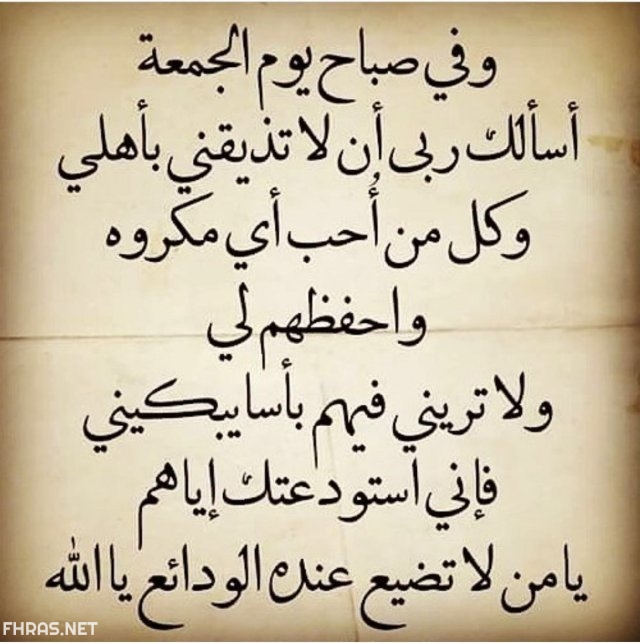 وفي صباح يوم الجمعة
أسألك ربى أن لا تذيقني بأهلي
وكل من أُحب أي مكروه
واحفظهم لي
ولا تريني فيهم بأسا يبكيني
فإني استودعتك إياهم
يا من لا تضيع عنده الودائع يا الله
FHRAS.NET